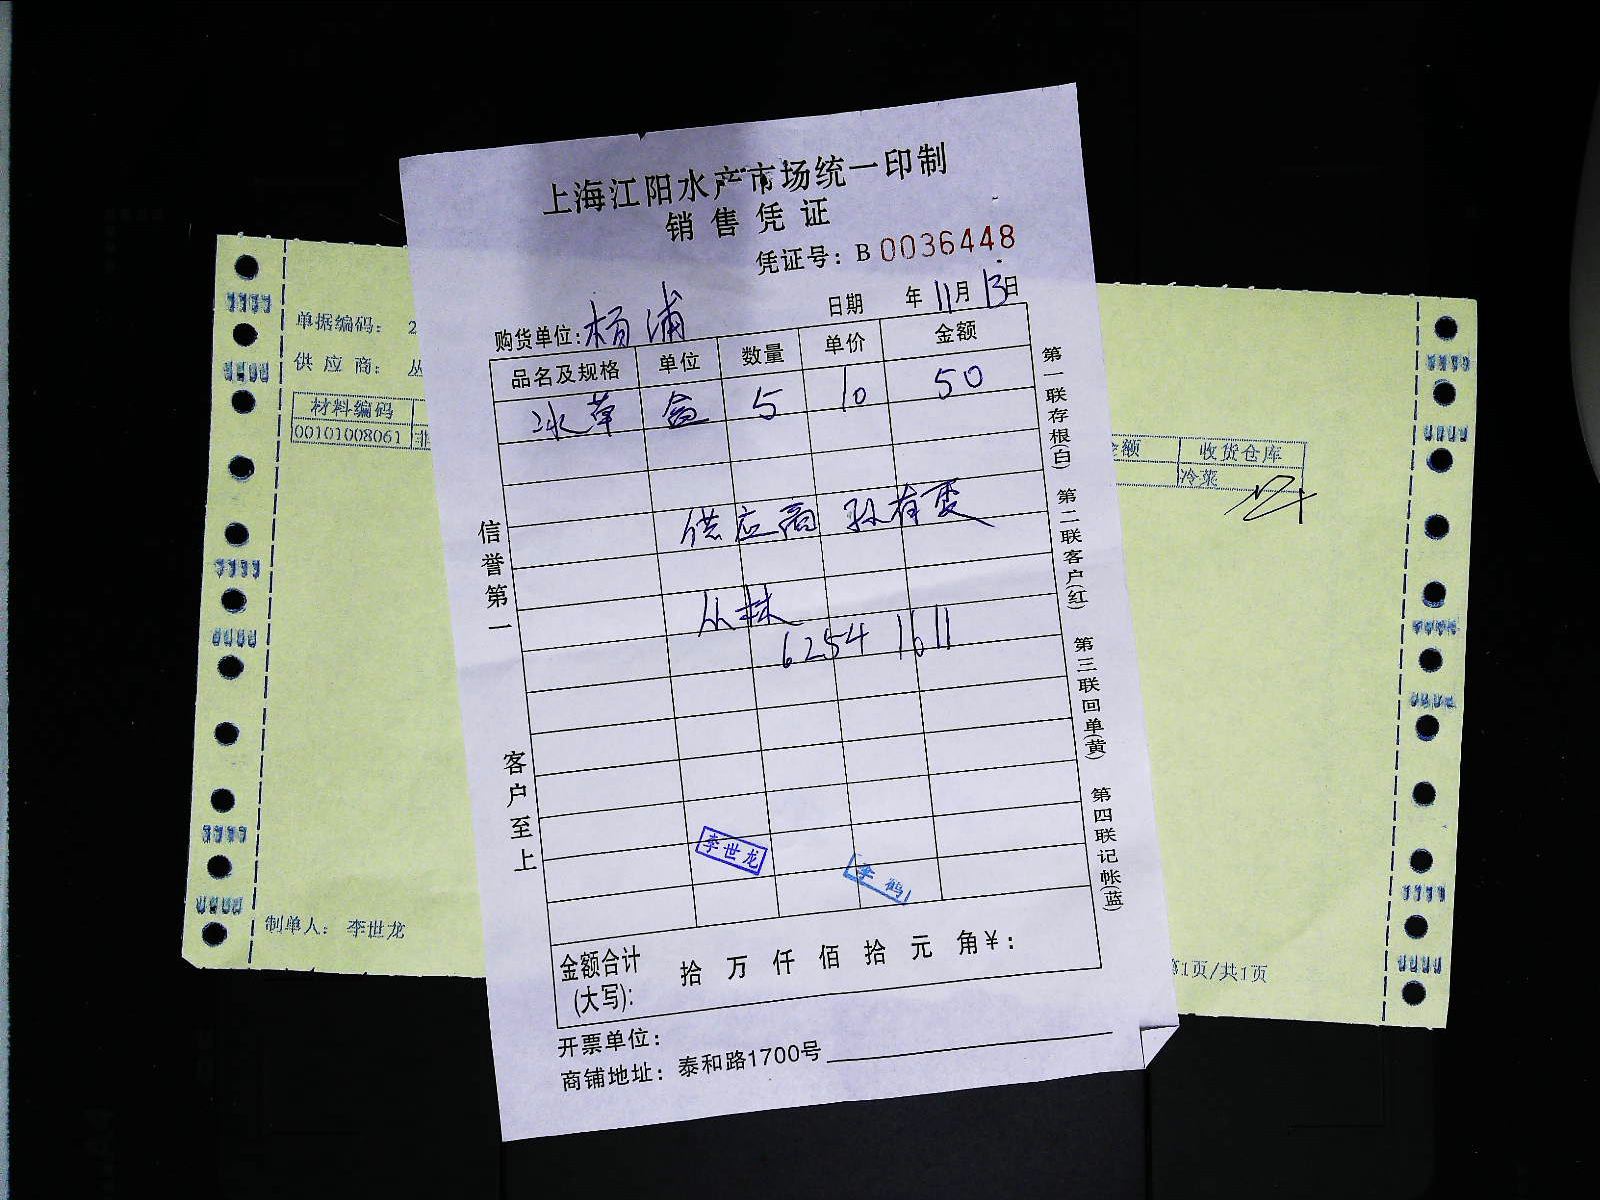 上海江阳水产市场统一印制
销售凭证
凭证号：B 0036448
日期 年11月13日
购货单位：杨浦
品名及规格 单位 数量 单价 金额
冰草 盒 5 10 50
供应商 孙有
丛林
6254 1611
信誉第一
客户至上
第一联存根(白) 第二联客户(红) 第三联回单(黄) 第四联记帐(蓝)
李世龙
李鹤
金额合计(大写)： 拾 万 仟 佰 拾 元 角¥：
开票单位：
商铺地址：泰和路1700号
单据编码： 2
供应商： 丛
材料编码
00101008061 非
金额 收货仓库
冷菜
制单人： 李世龙
第1页/共1页